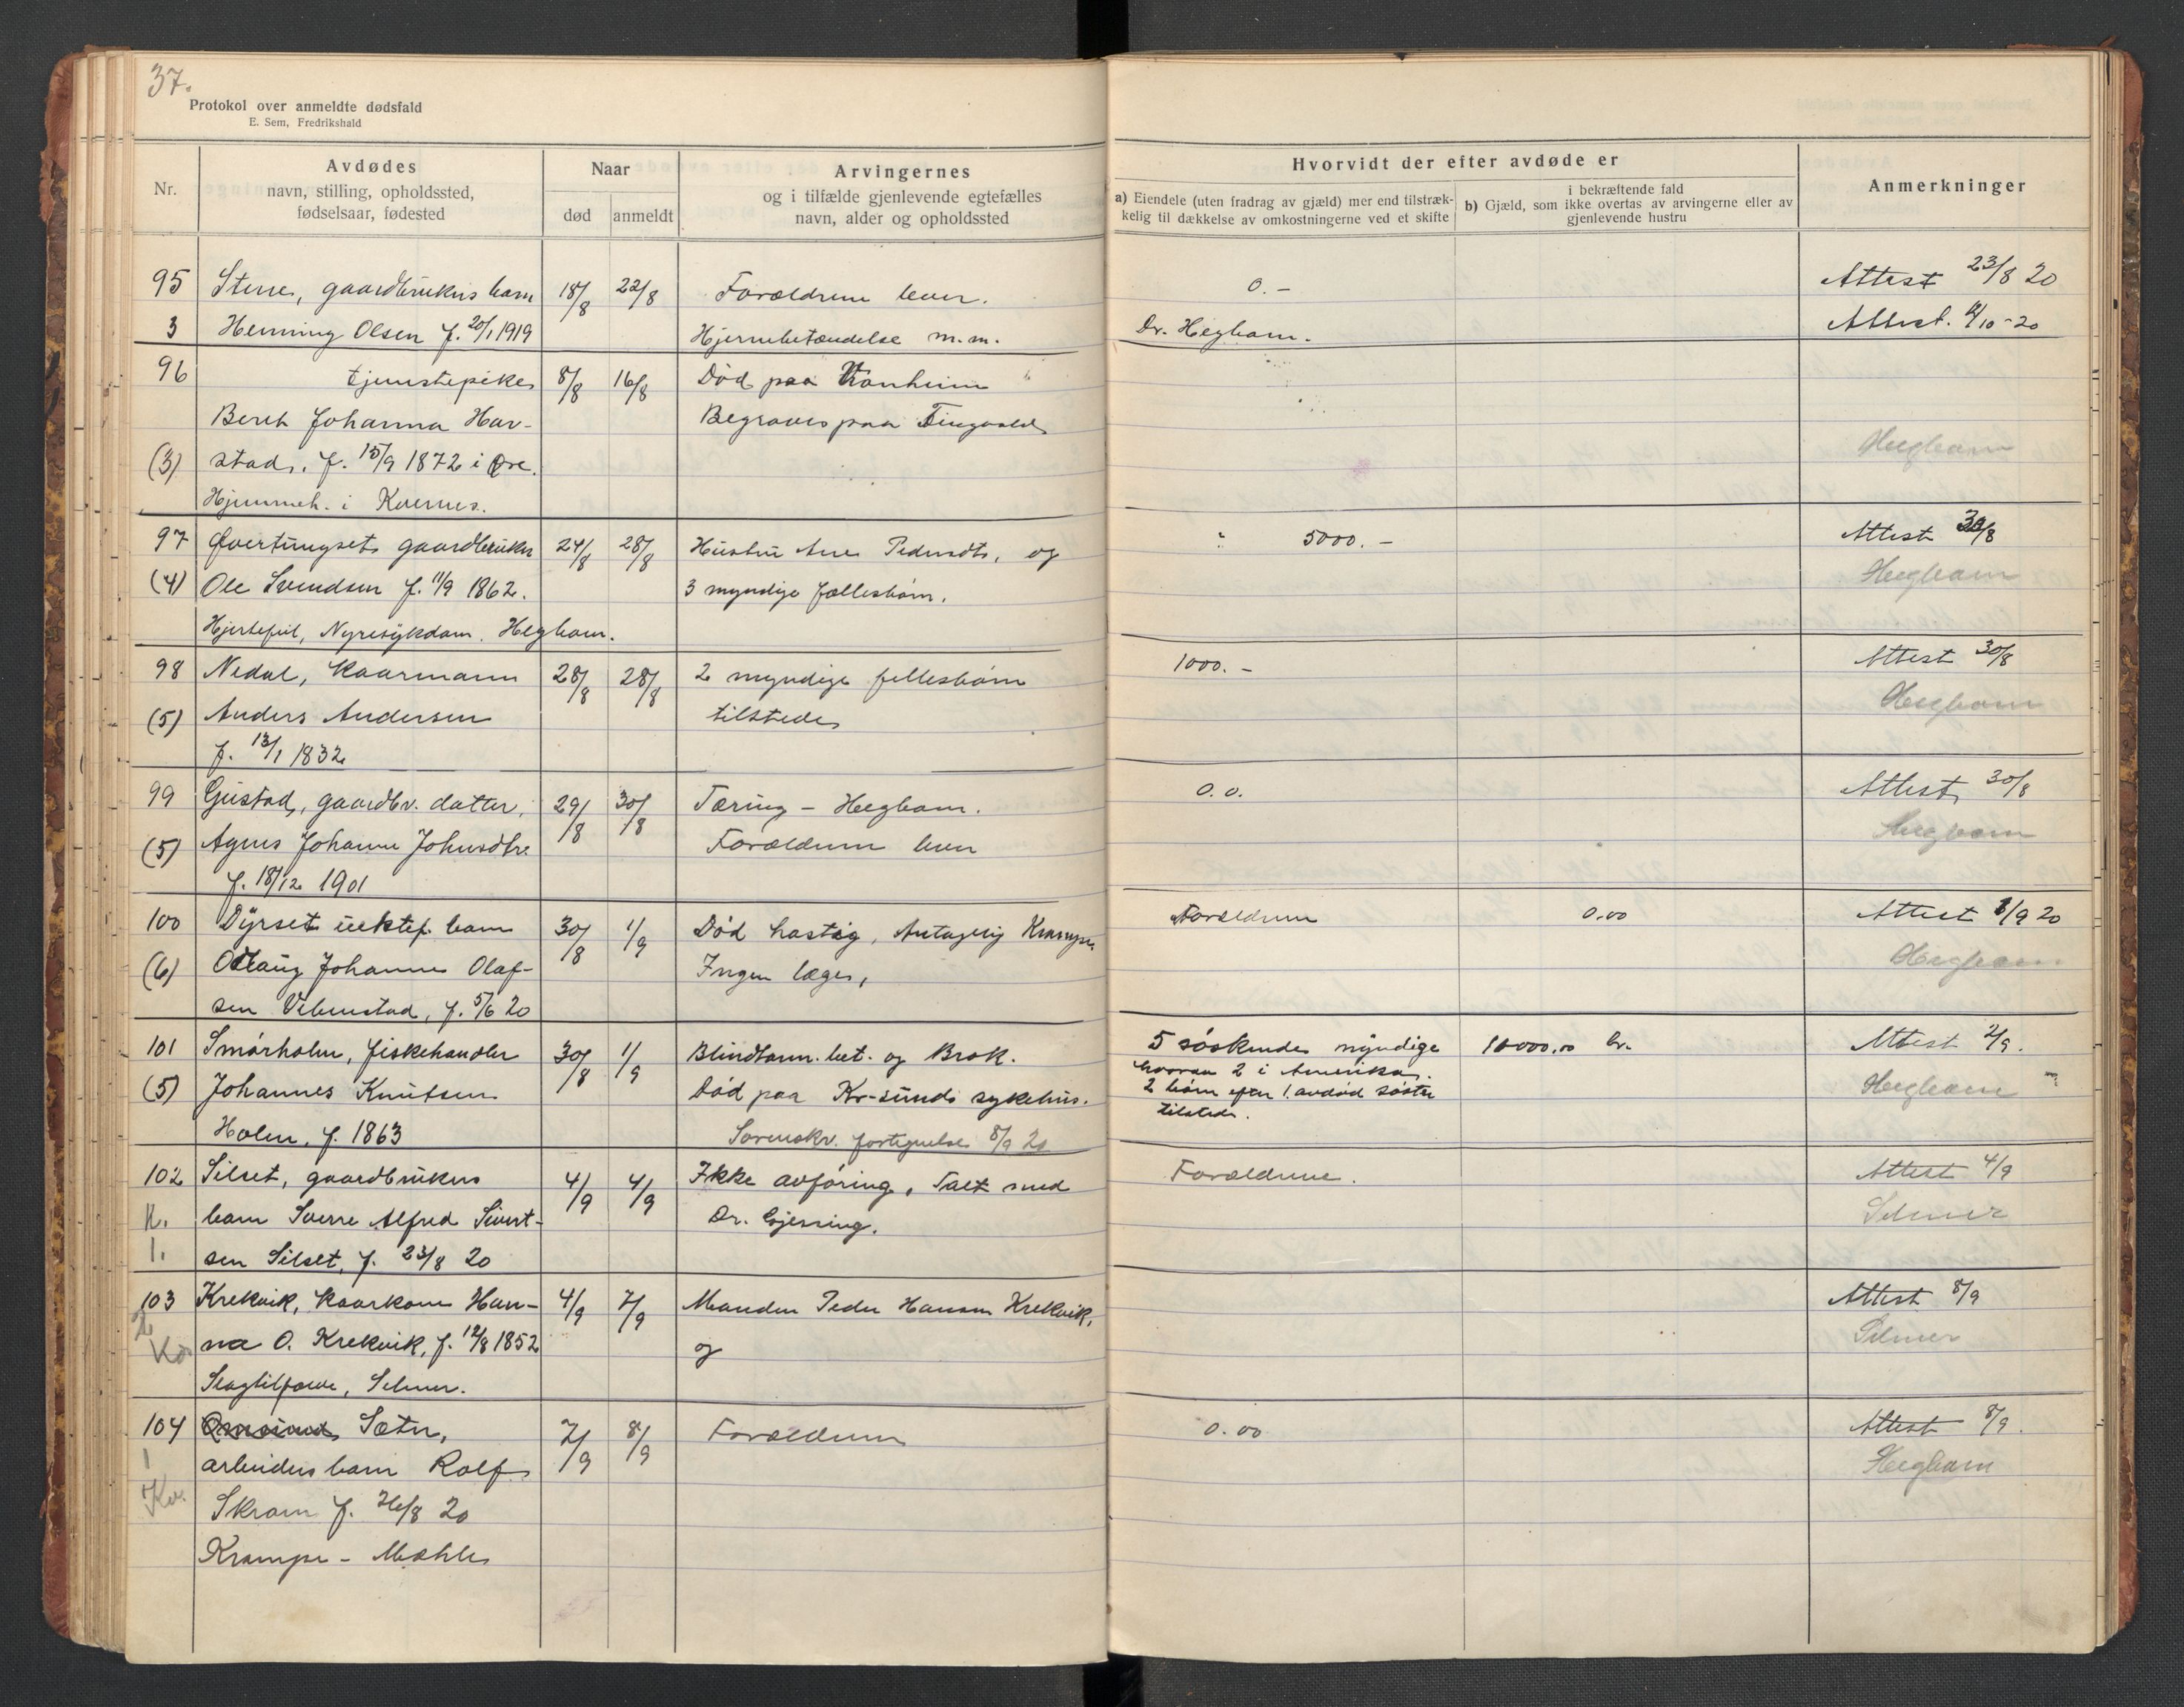 37.
Protokol over anmeldte dødsfald
E. Sem, Fredrikshald
Nr.
Avdødes
navn, stilling, opholdssted,
fødselsaar, fødested
Naar
død
anmeldt
Arvingernes
og i tilfælde gjenlevende egtefælles
navn, alder og opholdssted
Hvorvidt der efter avdøde er
a) Eiendele (uten fradrag av gjæld) mer end tilstræk-
kelig til dækkelse av omkostningerne ved et skifte
i bekræftende fald
b) Gjæld, som ikke overtas av arvingerne eller av
gjenlevende hustru
Anmerkninger
95 gaardbrukers barn 18/8 22/8 Forældrene lever. 0.- Attest 23/8 20
3 Henning Olsen f. 20/1 1919 Hjernebetændelse m.m. Dr. Hegbom. Attest. /10-20
96 tjenestepike 8/8 16/8 Død paa
Beret Johanna Har- Begraves paa Tingvold
(3) stad, f. 15/9 1872 i Øre. Hegbom
Hjemmeh. i Kvernes.
97 gaardbruker 24/8 28/8 Hustru Ane Pedersdtr, og 5000.- Attest 30/8
(4) Ole Svendsen f. 11/9 1862. 3 myndige fællesbørn. Hegbom
Hjertefeil, Nyresykdom. Hegbom.
98 Nedal, Kaarmann 28/8 28/8 2 myndige fellesbørn 1000.- Attest 30/8
(5) Anders Andersen tilstede Hegbom
f. 13/1 1832
99 Gustad, gaardbr. datter, 29/8 30/8 Tæring - Hegbom. 0.0. Attest 30/8
(5) Agnes Johanne Johnsdtr. Forældrene lever Hegbom
f. 18/12 1901
100 Dyrset uektef. barn 30/8 1/9 Død hastig, Antagelig Krampe. Forældrene 0.00 Attest 1/9 20
(6) Odlaug Johannes Olaf- Ingen læge, Hegbom
sen Vebenstad, f. 5/6 20
101 Smørholm, fiskehandler 30/8 1/9 Blindtarm. bet. og Brok. 5 søskende myndige 10000,00 kr. Attest 2/9.
hvorav 2 i Amerika.
(5) Johannes Knutsen Død paa Kr-sunds sykehus. 2 børn efter 1 avdød søster Hegbom
tilstede.
Holm, f. 1863 Sorenskv. fortegnelse 8/9 20
102 Silset, gaardbrukers 4/9 4/9 Ikke avføring, Talt med Forældrene. Attest 4/9
K. barn Sverre Alfred Sivert- Dr. Gjessing. Selmer
1. sen Silset, f. 23/8 20
103 Krekvik, Kaarkone Han- 4/9 7/9 Manden Peder Hansen Krekvik, Attest 8/9
2 Kv. na O. Krekvik, f. 12/8 1852 og Selmer
Slagtilfælde, Selmer.
104 Sæter, 7/9 8/9 Forældrene 0.00 Attest 8/9.
1 arbeiders barn Rolf Hegbom
Kv. Skram f. 26/8 20
Krampe - Mæhle